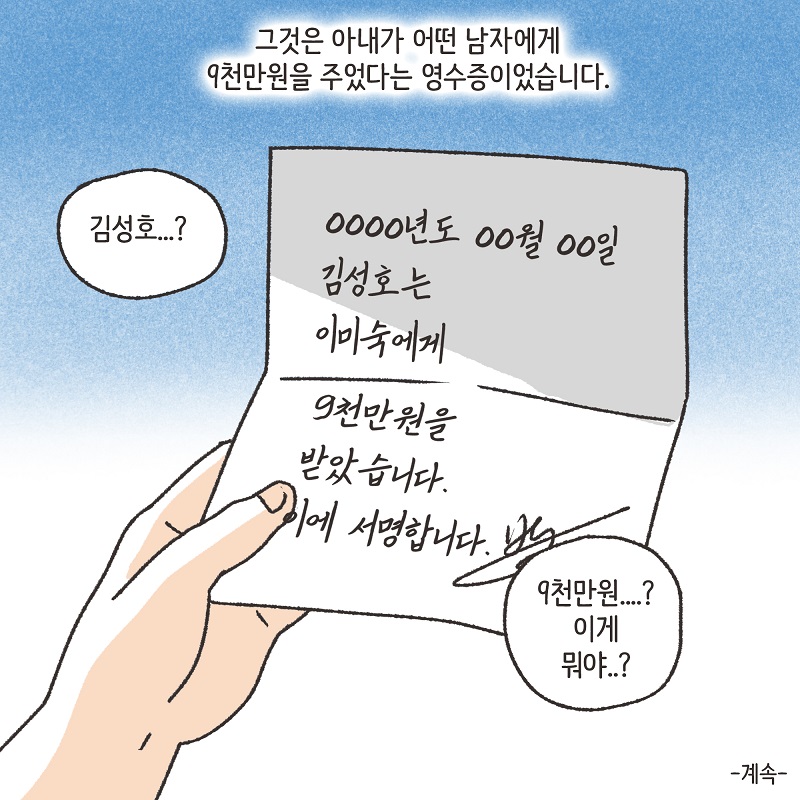 그것은 아내가 어떤 남자에게
9천만원을 주었다는 영수증이었습니다.
김성호...?
0000년도 00월 00일
김성호는
이미숙에게
9천만원을
받았습니다.
이에 서명합니다.
9천만원....?
이게
뭐야..?
-계속-